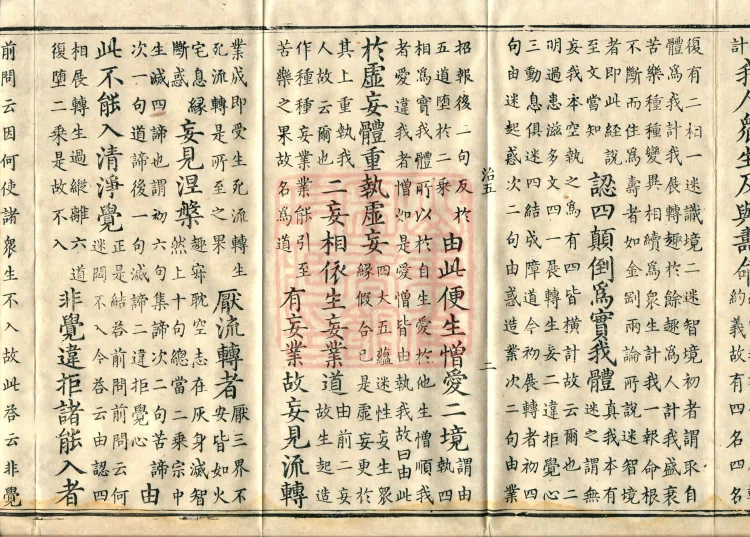 計我人衆生及與壽命約義故有四名四名
復有二相一迷識境二迷智境初者謂取自
體爲我計我展轉趣於餘趣爲人計我盛衰
苦樂種種變異相續爲衆生計我一報命根
不斷而住爲壽者如金剛兩論所說迷智境
者即此經說至文當知認四顚倒爲實我體真我本有迷之謂無
妄我本空執之爲有四皆橫計故云爾也二
明過患滋多文四一展轉生妄二違拒覺心
三動息俱迷四結成障道今初展轉者初四
句由迷起惑次二句由惑造業次二句由業
治五 二
招報後二句及於五道墮於二乘由此便生憎愛二境謂由執四
相爲實我體所以於自生愛於他生憎順我
者愛違我者憎如是愛憎皆由執我故曰由此
於虛妄體重執虛妄四大五蘊迷性妄生衆緣假合已是虛妄更於
其上重執我人故云爾也二妄相依生妄業道由前二妄故生起造
作種種妄業業能引至苦樂之果故名爲道有妄業故妄見流轉
業成即受生死流轉生死流轉是所至之果厭流轉者厭三界不安皆如火
宅息緣斷惑妄見涅槃趣寂耽空志在灰身滅智然上十句總當二乘宗中
生滅四諦也謂初六句集諦次二句苦諦次一句道諦後一句滅諦二違拒覺心由
此不能入清淨覺正是結答前問前問云何迷悶不入今答云由認四
相展轉生過縱離六道復墮二乘是故不入非覺違拒諸能入者
前問云因何使諸衆生不入故此答云非覺